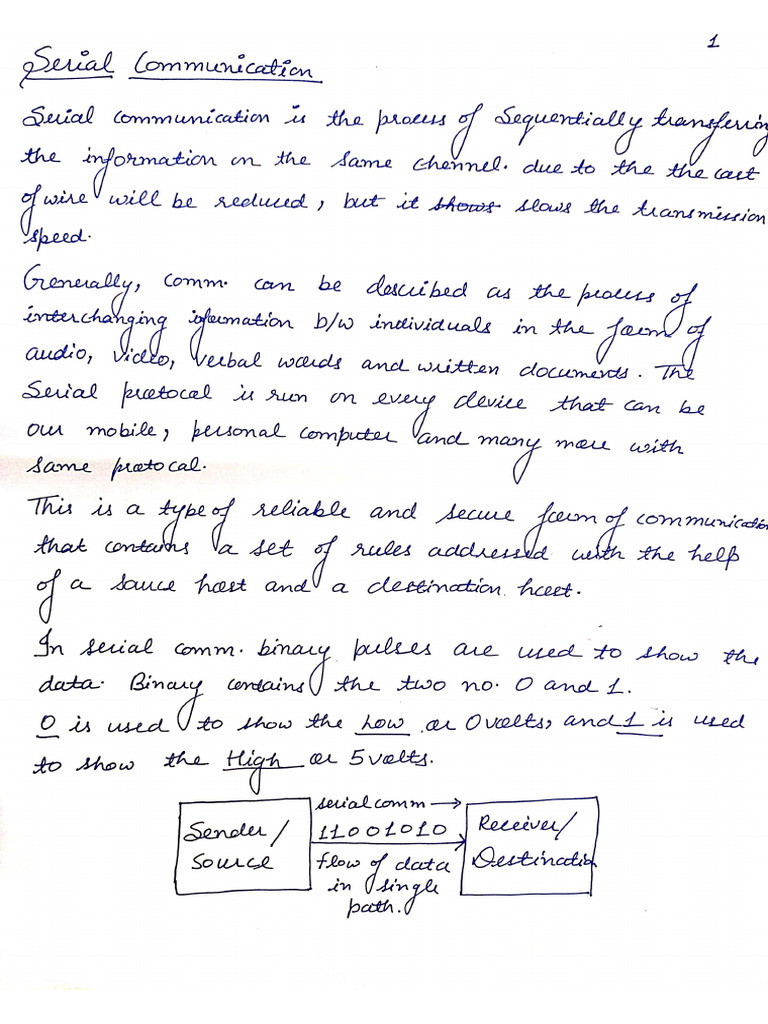 1
Serial Communication
Serial communication is the process of Sequentially transferring
the information on the same channel. due to the the cost
of wire will be reduced, but it shows slows the transmission
speed.
Generally, comm. can be described as the process of
interchanging information b/w individuals in the form of
audio, video, verbal words and written documents. The
Serial protocal is run on every device that can be
our mobile, personal computer and many more with
same protocal.
This is a type of reliable and secure form of communication
that contains a set of rules addressed with the help
of a source host and a destination host.
In serial comm. binary pulses are used to show the
data. Binary contains the two no. 0 and 1.
0 is used to show the Low or 0 volts, and 1 is used
to show the High or 5 volts.
serial comm →
Sender/ 11001010 Receiver/
Source flow of data Destination
in single
path.